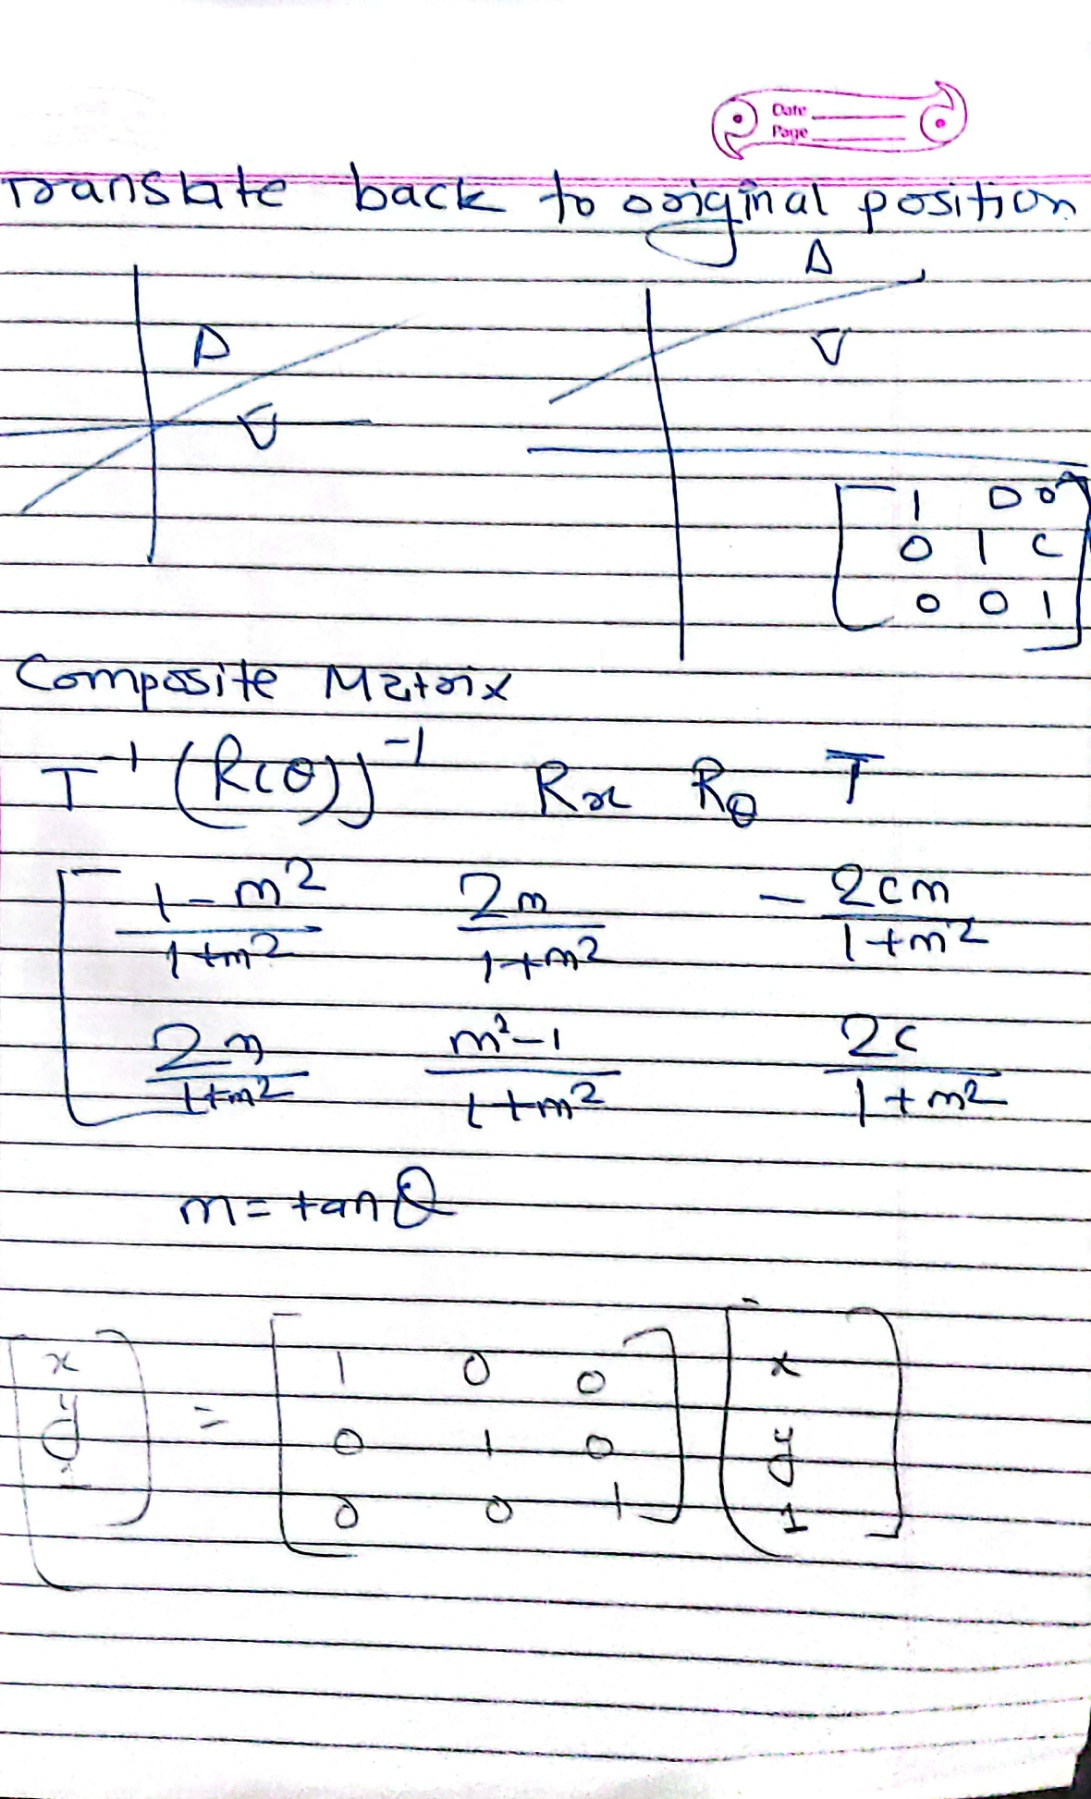 Date
Page
Translate back to original position
1 0 0
0 1 c
0 0 1
Composite Matrix
T⁻¹ (R(θ))⁻¹ Rx Rθ T
1-m²/1+m² 2m/1+m² -2cm/1+m²
2m/1+m² m²-1/1+m² 2c/1+m²
m = tanθ
x = 1 0 0 x
y 0 1 0 y
0 0 1 1